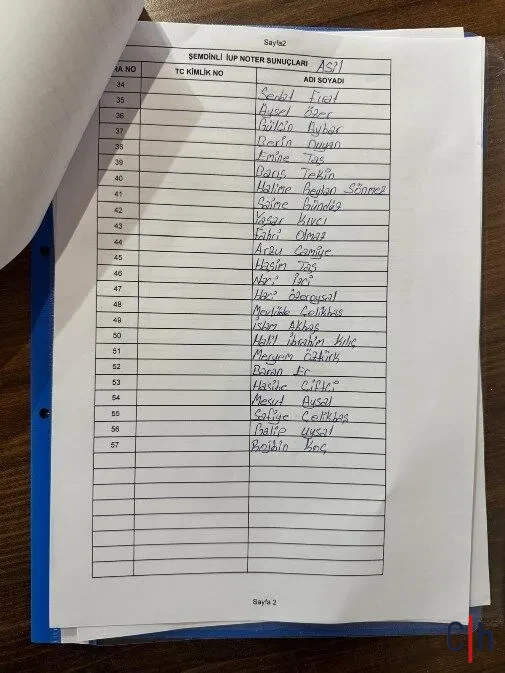 Sayfa2
ŞEMDİNLİ İUP NOTER SUNUÇLARI ASİL
RA NO TC KİMLİK NO ADI SOYADI
34 Sedat Fırat
35 Aysel Özer
36 Gülçin Aybar
37 Berin Duyan
38 Emine Taş
39 Barış Tekin
40 Halime Beylan Sönmez
41 Saime Gündüz
42 Yaşar Kıvcı
43 Fahri Olmaz
44 Arzu Camiye
45 Haşim Taş
46 Naci İzci
47 Haci Özeroysal
48 Mevlüde Çelikbaş
49 İslam Akbaş
50 Halil İbrahim Kılıç
51 Meryem Öztürk
52 Baran Er
53 Hasibe Çiftçi
54 Mesut Aysal
55 Safiye Çelikbaş
56 Galip Uysal
57 Bojbin Koç
Sayfa 2
Ch